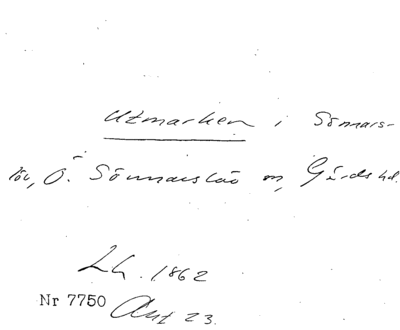 Utmarken i Sönnars-
löv, Ö. Sönnarslöv sn, Gärds hd.
Lh. 1862
Nr 7750 Akt 23.